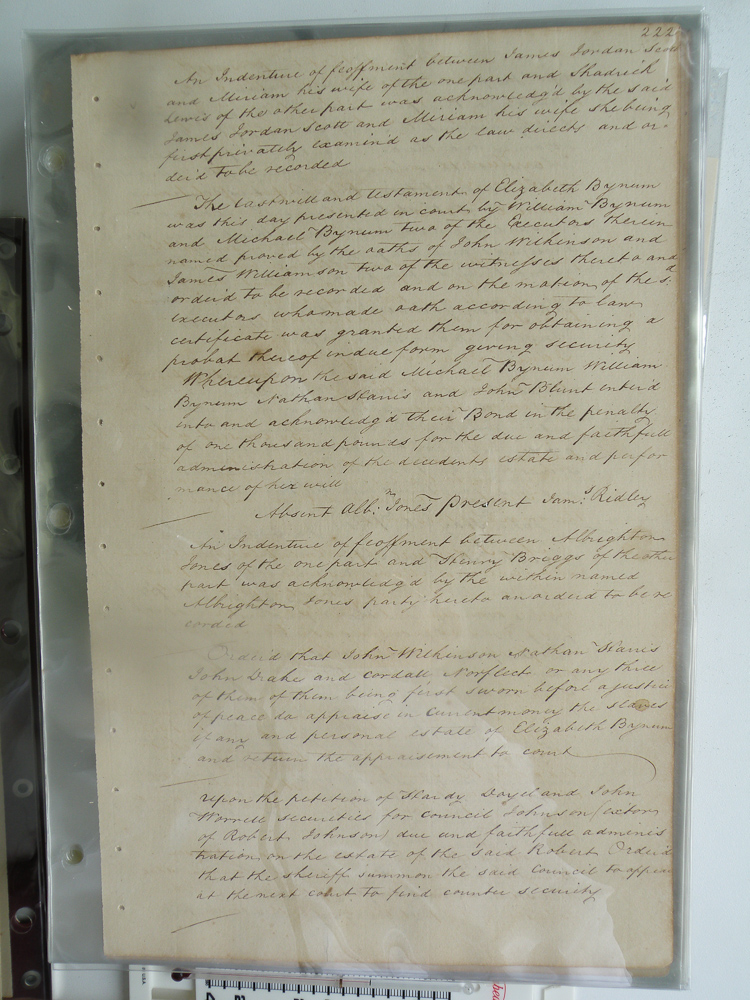 222
An Indenture of feoffment between James Jordan Scott
and Miriam his wife of the one part and Shadrick
Lewis of the other part was acknowledg'd by the said
James Jordan Scott and Miriam his wife she being
first privately examin'd as the law directs and or-
der'd to be recorded
The last will and testament of Elizabeth Bynum
was this day presented in court by William Bynum
and Michael Bynum two of the Executors therein
named proved by the oaths of John Wilkinson and
James Williamson two of the witnesses thereto and
order'd to be recorded and on the motion of the sd
executors who made oath according to law
certificate was granted them for obtaining a
probat thereof in due form giving security
Whereupon the said Michael Bynum William
Bynum Nathan Harris and John Blunt enter'd
into and acknowledg'd their Bond in the penalty
of one thousand pounds for the due and faithfull
administration of the decedents estate and perfor
mance of her will
Absent Alb:n Jones present Jam:s Ridley
An Indenture of feoffment between Albrighton
Jones of the one part and Henry Briggs of the other
part was acknowledg'd by the within named
Albrighton Jones party hereto an order'd to be re
corded
Order'd that John Wilkinson Nathan Harris
John Drake and Cordall Norfleet or any three
of them of them being first sworn before a justice
of peace do appraise in current money the slaves
if any and personal estate of Elizabeth Bynum
and return the appraisement to court
Upon the petition of Hardy Doyel and John
Worrell securities for Council Johnson (extor
of Robert Johnson) due and faithfull adminis
tration on the estate of the said Robert Order'd
that the sheriff summon the said Council to appear
at the next court to find counter security